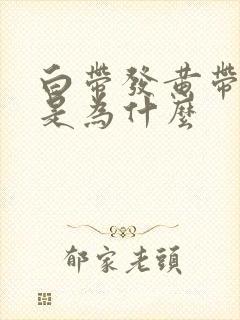 白帶發黄帶
是為什麼
郁家老頭